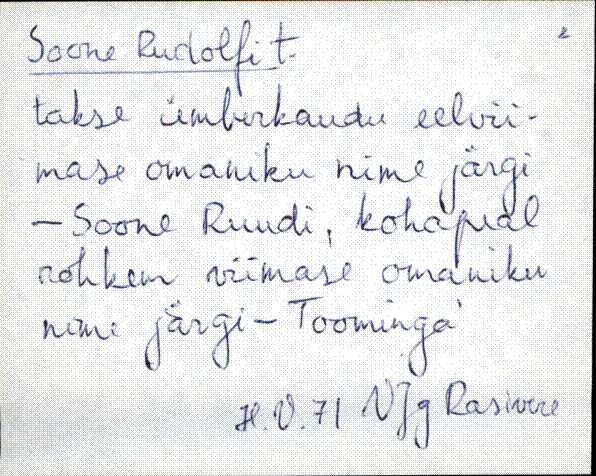 Soone Rudolfi t. 2
takse ümberkaudu eelvii-
mase omaniku nime järgi
– Soone Ruudi, kohapeal
rohkem viimase omaniku
nime järgi – Toominga
H.V. 71 VJg Rasivere